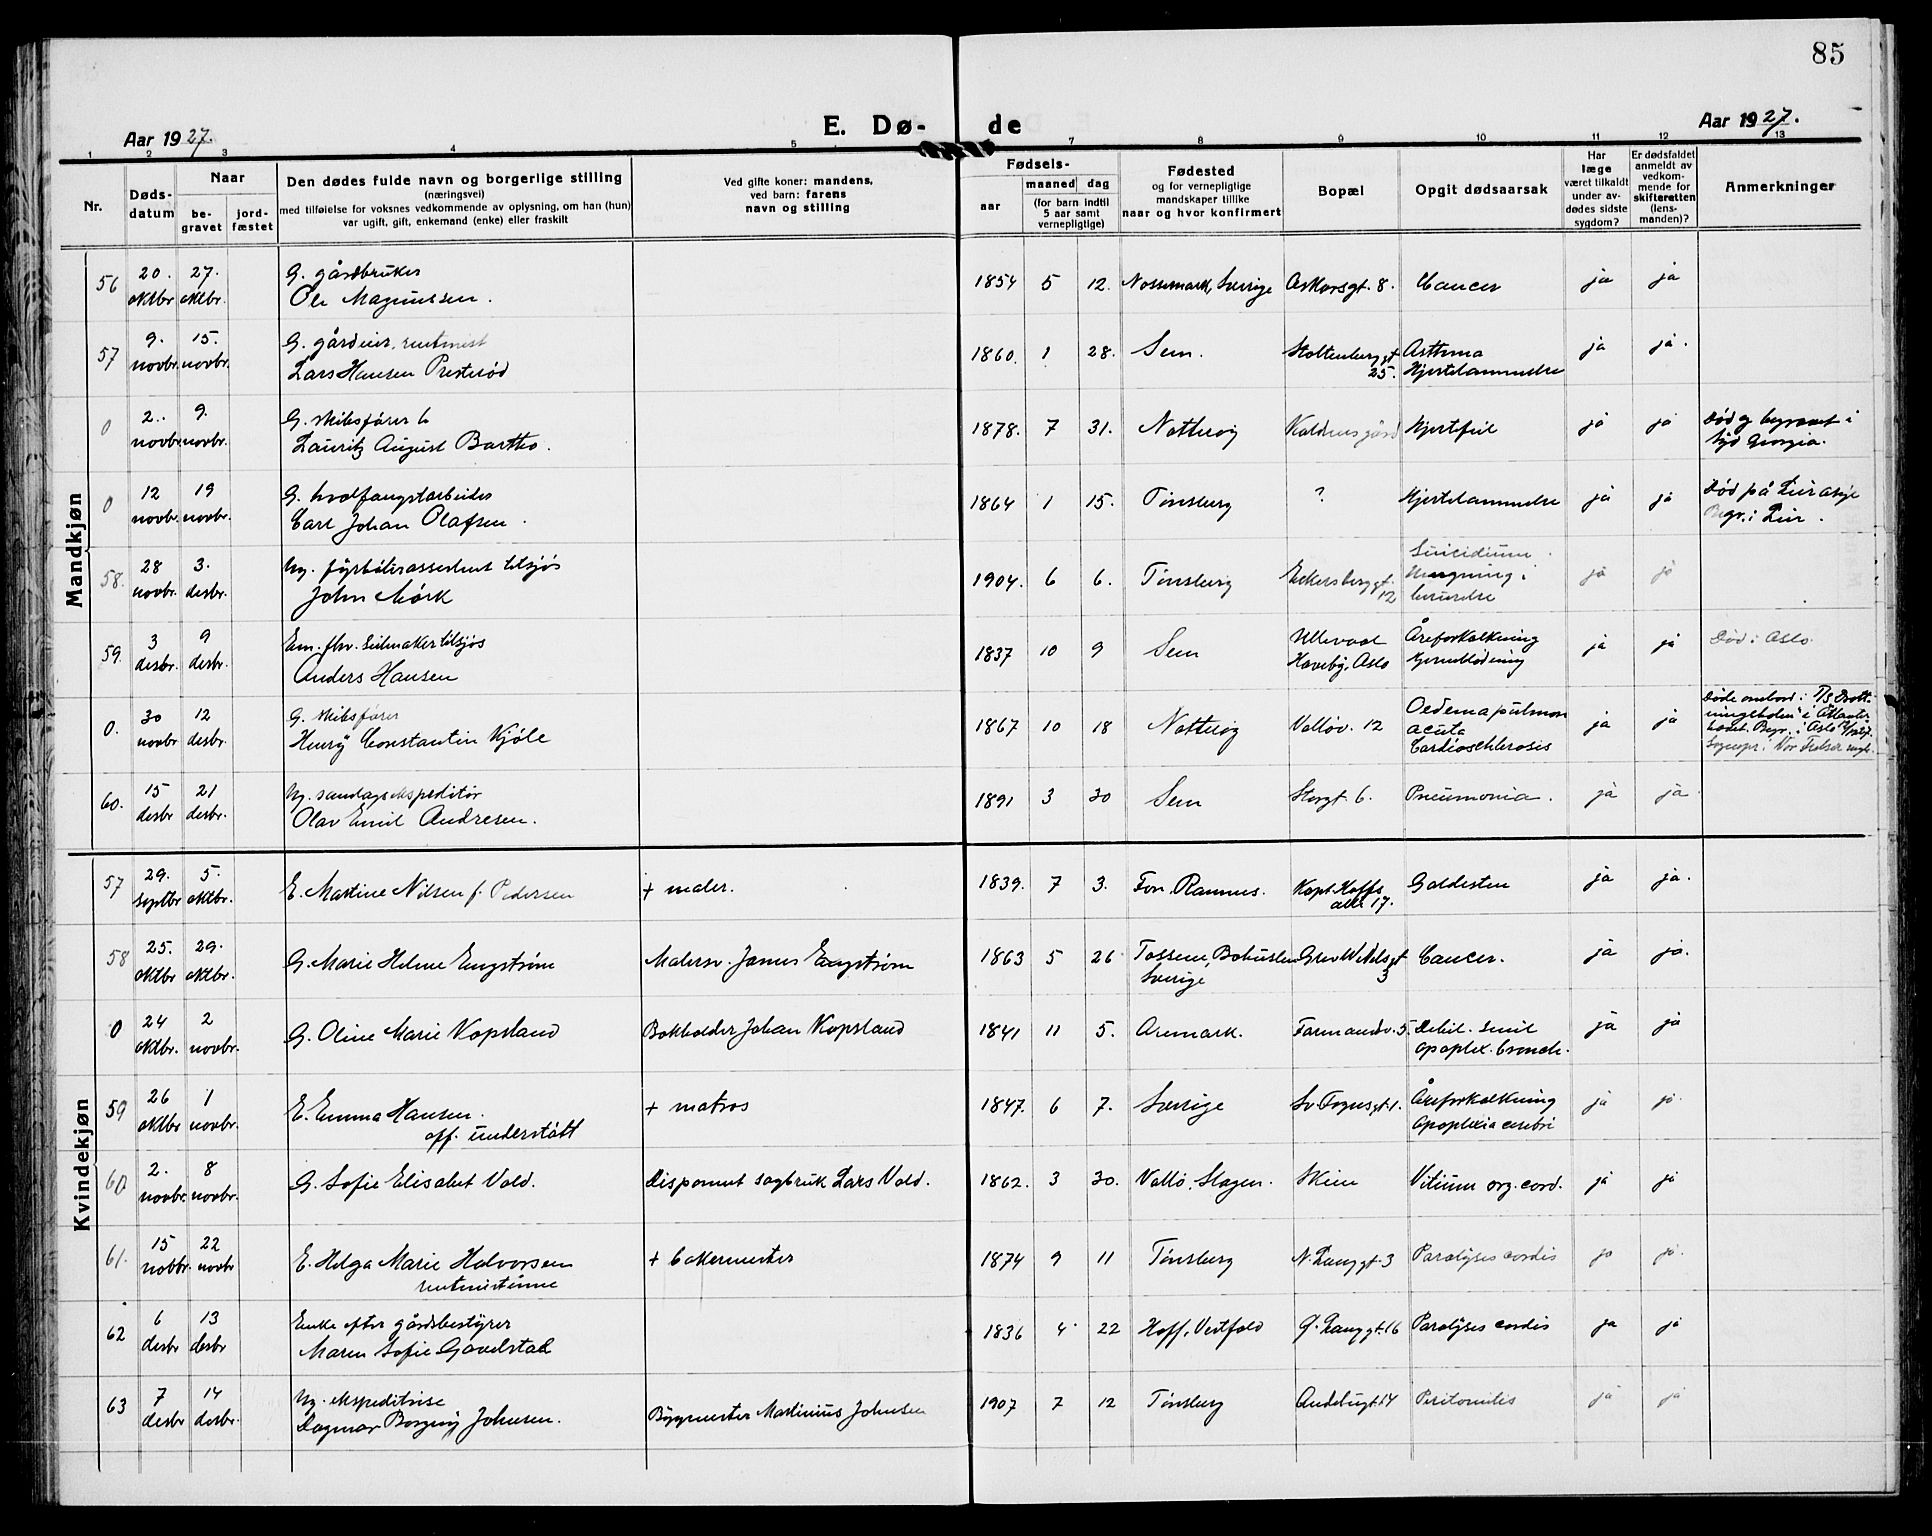 85
Aar 1927.
E. Dø-
de
Aar 1927.
1 2 3 4 5 7 8 9 10 11 12 13
Nr.
Døds-
datum
Naar
be-
gravet
jord-
fæstet
Den dødes fulde navn og borgerlige stilling
(næringsvei)
med tilføielse for voksnes vedkommende av oplysning, om han (hun)
var ugift, gift, enkemand (enke) eller fraskilt
Ved gifte koner: mandens,
ved barn: farens
navn og stilling
Fødsels-
aar
maaned
dag
(for barn indtil
5 aar samt
vernepligtige)
Fødested
og for vernepligtige
mandskaper tillike
naar og hvor konfirmert
Bopæl
Opgit dødsaarsak
Har
læge
været tilkaldt
under av-
dødes sidste
sygdom?
Er dødsfaldet
anmeldt av
vedkom-
mende for
skifteretten
(lens-
manden)?
Anmerkninger
Mandkjøn
56
20. oktbr
27. oktbr.
G. gårdbruker
Ole Magnussen.
1854 5 12.
Nossemark, Sverige
Askorsgt. 8.
Cancer
ja ja
57
9. novbr.
15. novbr.
G. gårdeier, rentenist
Lars Hansen Presterød
1860. 1 28.
Sem.
Stoltenberggt
25.
Asthma
Hjertelammelse
ja ja.
0
2. novbr
9. novbr.
G. skibsfører
Lauritz August Bartho.
1878. 7 31.
Nøtterøy
Kaldnes gård
Hjertfeil
ja ja
Død og begravet i
Syd Georgia.
0
12 novbr.
19 novbr.
G. hvalfangstarbeider
Carl Johan Olafsen.
1864 1 15.
Tønsberg
?
Hjertelammelse
ja ja
Død på Lier asyl
Begr. i Lier.
58.
28 novbr.
3. desbr.
Ug. fyrbøterassistent tilsjøs
John Mørk
1904. 6 6.
Tønsberg
Eckersberggt.
12
Suicidium.
Hengning i
beruselse
ja ja
59.
3 desbr.
9 desbr.
Em. fhv. Seilmaker tilsjøs
Anders Hansen
1837 10 9
Sem
Ullevaal
Haveby, Oslo
Åreforkalkning
Hjerneblødning
ja ja
Død i Oslo.
0.
30 novbr
12 desbr.
G. skibsfører
Henry Constantin Kjøle
1867 10 18
Nøtterøy
Valløv. 12
Oedema pulmon
acuta
Cardioschlerosis
ja ja
60.
15 desbr.
21 desbr.
Ug. ekspeditør
Olav Emil Andresen.
1891 3 30
Sem
Storgt. 6.
Pneumonia.
ja ja
Kvindekjøn
57
29. septbr
5. oktbr.
E. Martine Nilsen f. Pedersen
+ maler.
1839. 7 3.
Fon, Ramnes.
Kapt. Hoffs
alle 17.
Galdesten
ja ja.
58
25. oktbr
29. oktbr.
G. Marie Helene Engstrøm
Malersv. Janus Engstrøm
1863 5 26
Tossene, Bohuslen
Sverige
Grev Wedelsgt
3
Cancer.
ja ja.
0
24 oktbr.
2 novbr.
G. Oline Marie Kopstand
Bokholder Johan Kopstand
1841 11 5.
Aremark.
Farmandsv. 5.
Debil. senil
apoplex. bronch.
ja ja
59
26 oktbr
1 novbr.
E. Emma Hansen.
off. understøtt
+ matros
1847. 6 7.
Sverige
Sv. Foynsgt. 1.
Åreforkalkning
Apoplexia cerebri
ja ja.
60
2. novbr.
8 novbr.
G. Sofie Elisabet Vold.
Disponent sagbruk Lars Vold.
1862. 3 30.
Vallø, Slagen.
Skien
Vitium org. cord.
ja ja
61.
15 novbr.
22 novbr
E. Helga Marie Halvorsen
rentenistinne
+ bakermester
1874 9 11
Tønsberg
N. Langgt. 3
Paralyses cordis
ja ja.
62
6 desbr
13 desbr
Enke efter gårdsbestyrer
Maren Sofie Gavelstad
1836 4 22
Hoff, Vestfold
Ø. Langgt. 16
Paralyses cordis
ja ja
63
7 desbr
14 desbr.
Ug. ekspeditrise
Dagmar Borgny Johnsen.
Byggmester Martinius Johnsen
1907 7 12
Tønsberg
Andebugt. 14
Peritonitis
ja ja